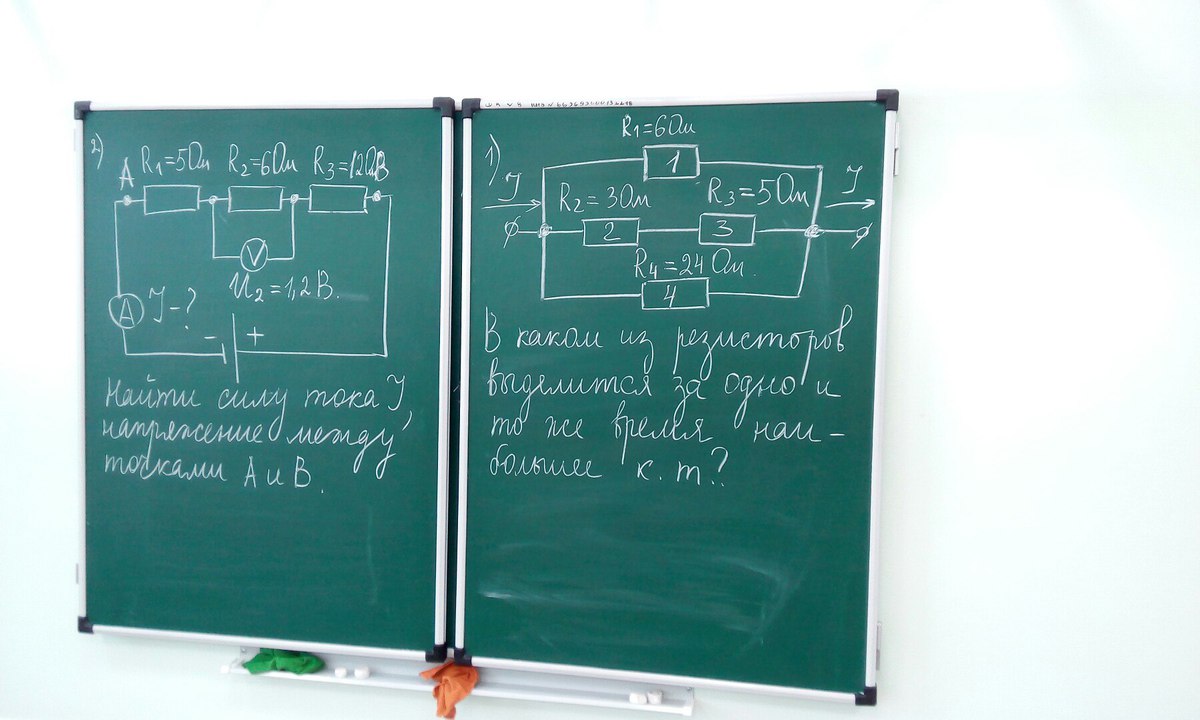 2)
A R₁=5Ом R₂=6Ом R₃=12Ом B
V
U₂=1,2В.
A I-?
- +
Найти силу тока I,
напряжение между
точками А и В.
1)
R₁=6Ом
1
I R₂=3Ом R₃=5Ом I
2 3
R₄=24Ом.
4
В каком из резисторов
выделится за одно и
то же время наи-
большее к.т?